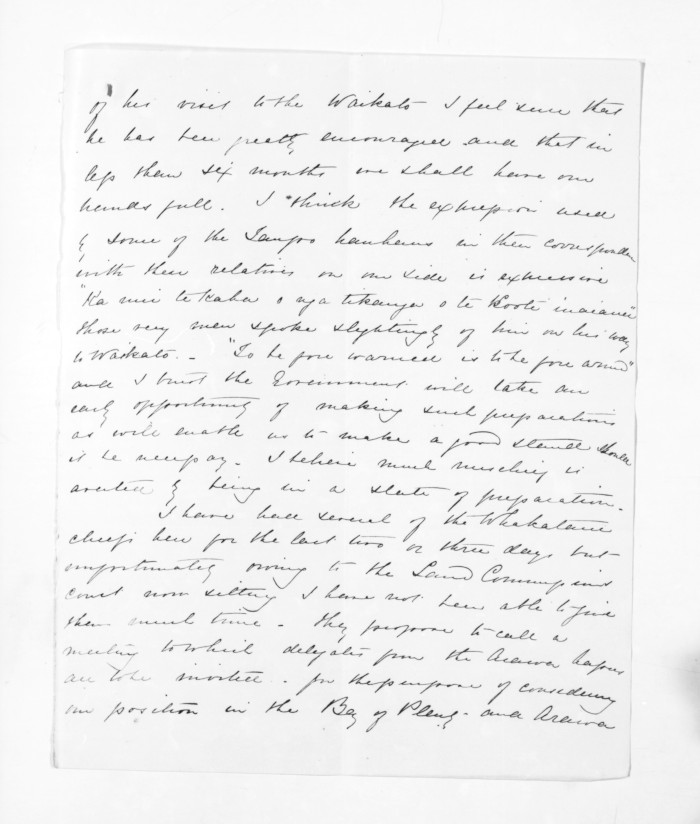 of his visit to the Waikato I feel sure that
he has been greatly encouraged and that in
less than six months we shall have our
hands full. I think the expression used
by some of the hauhaus in their corresponden
with their relatives on our side is expressive
"Ka nui te kaha o nga tikanga o te Kooti inaianei"
those very men spoke slightingly of him on his way
to Waikato. - "To be fore warned is to be fore armed"
and I trust the Government will take an
early opportunity of making such preparations
as will enable us to make a good stand should
it be necessary. I believe much mischief is
averted by being in a state of preparation.
I have had several of the Whakatane
chiefs here for the last two or three days but
unfortunately owing to the Land Commissions
court now sitting I have not been able to give
them much time - they propose to call a
meeting to which delegates from the Arawa hapus
are to be invited - for the purpose of considering
our position in the Bay of Plenty - and Arawa